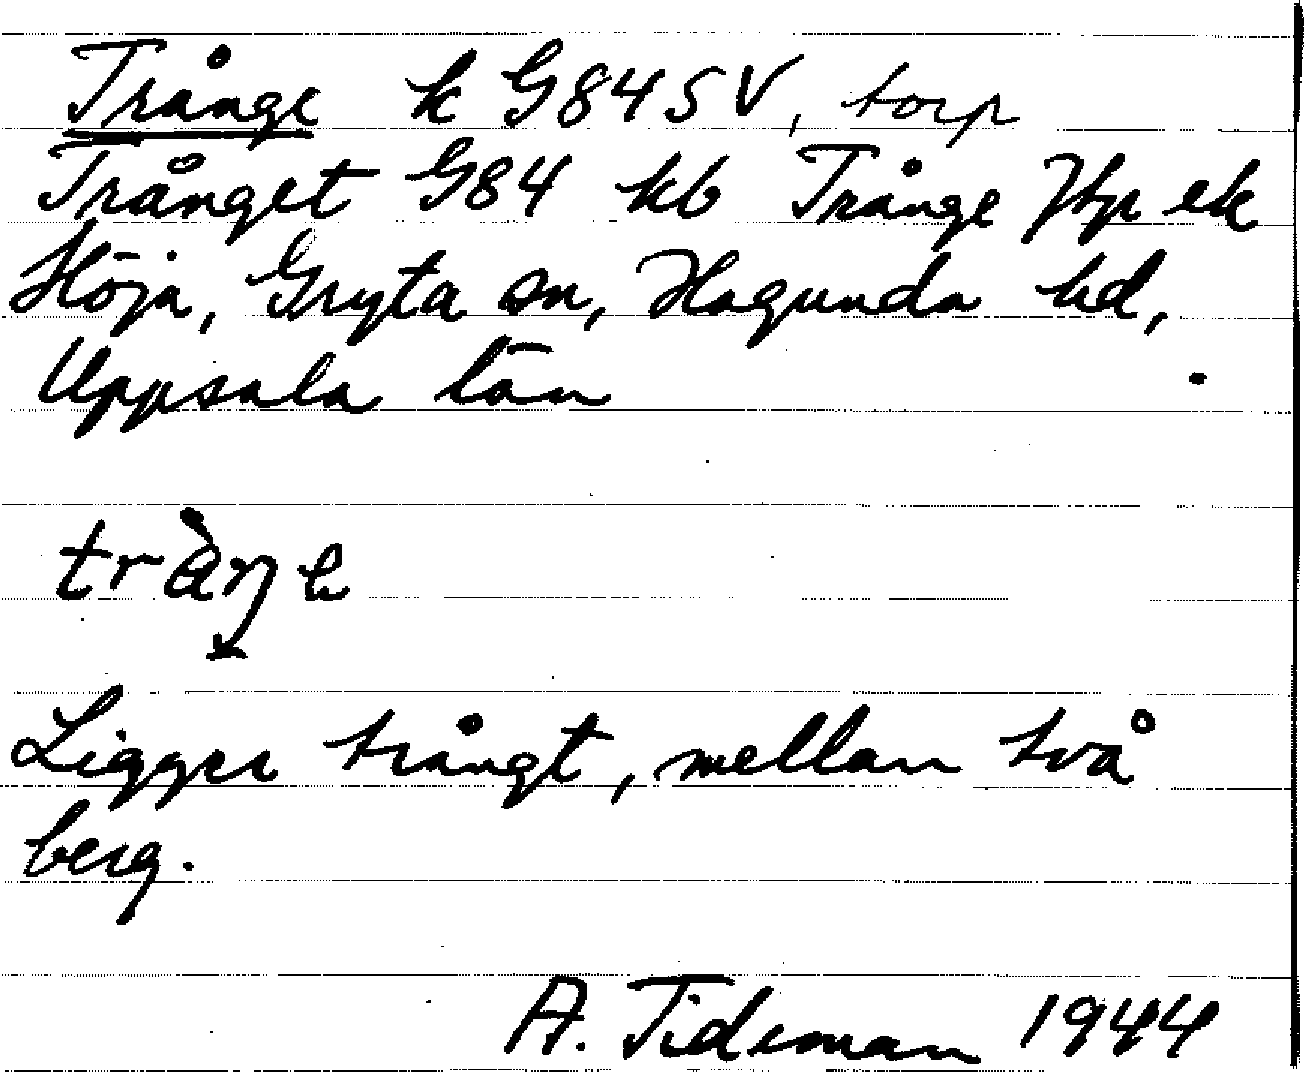 Trånge k G84SV, torp
Trånget G84 kb Trånge Hfl ek
Höja, Gryta sn, Hagunda hd,
Uppsala län
tràŋe
Ligger trångt, mellan två
berg.
A. Tideman 1944